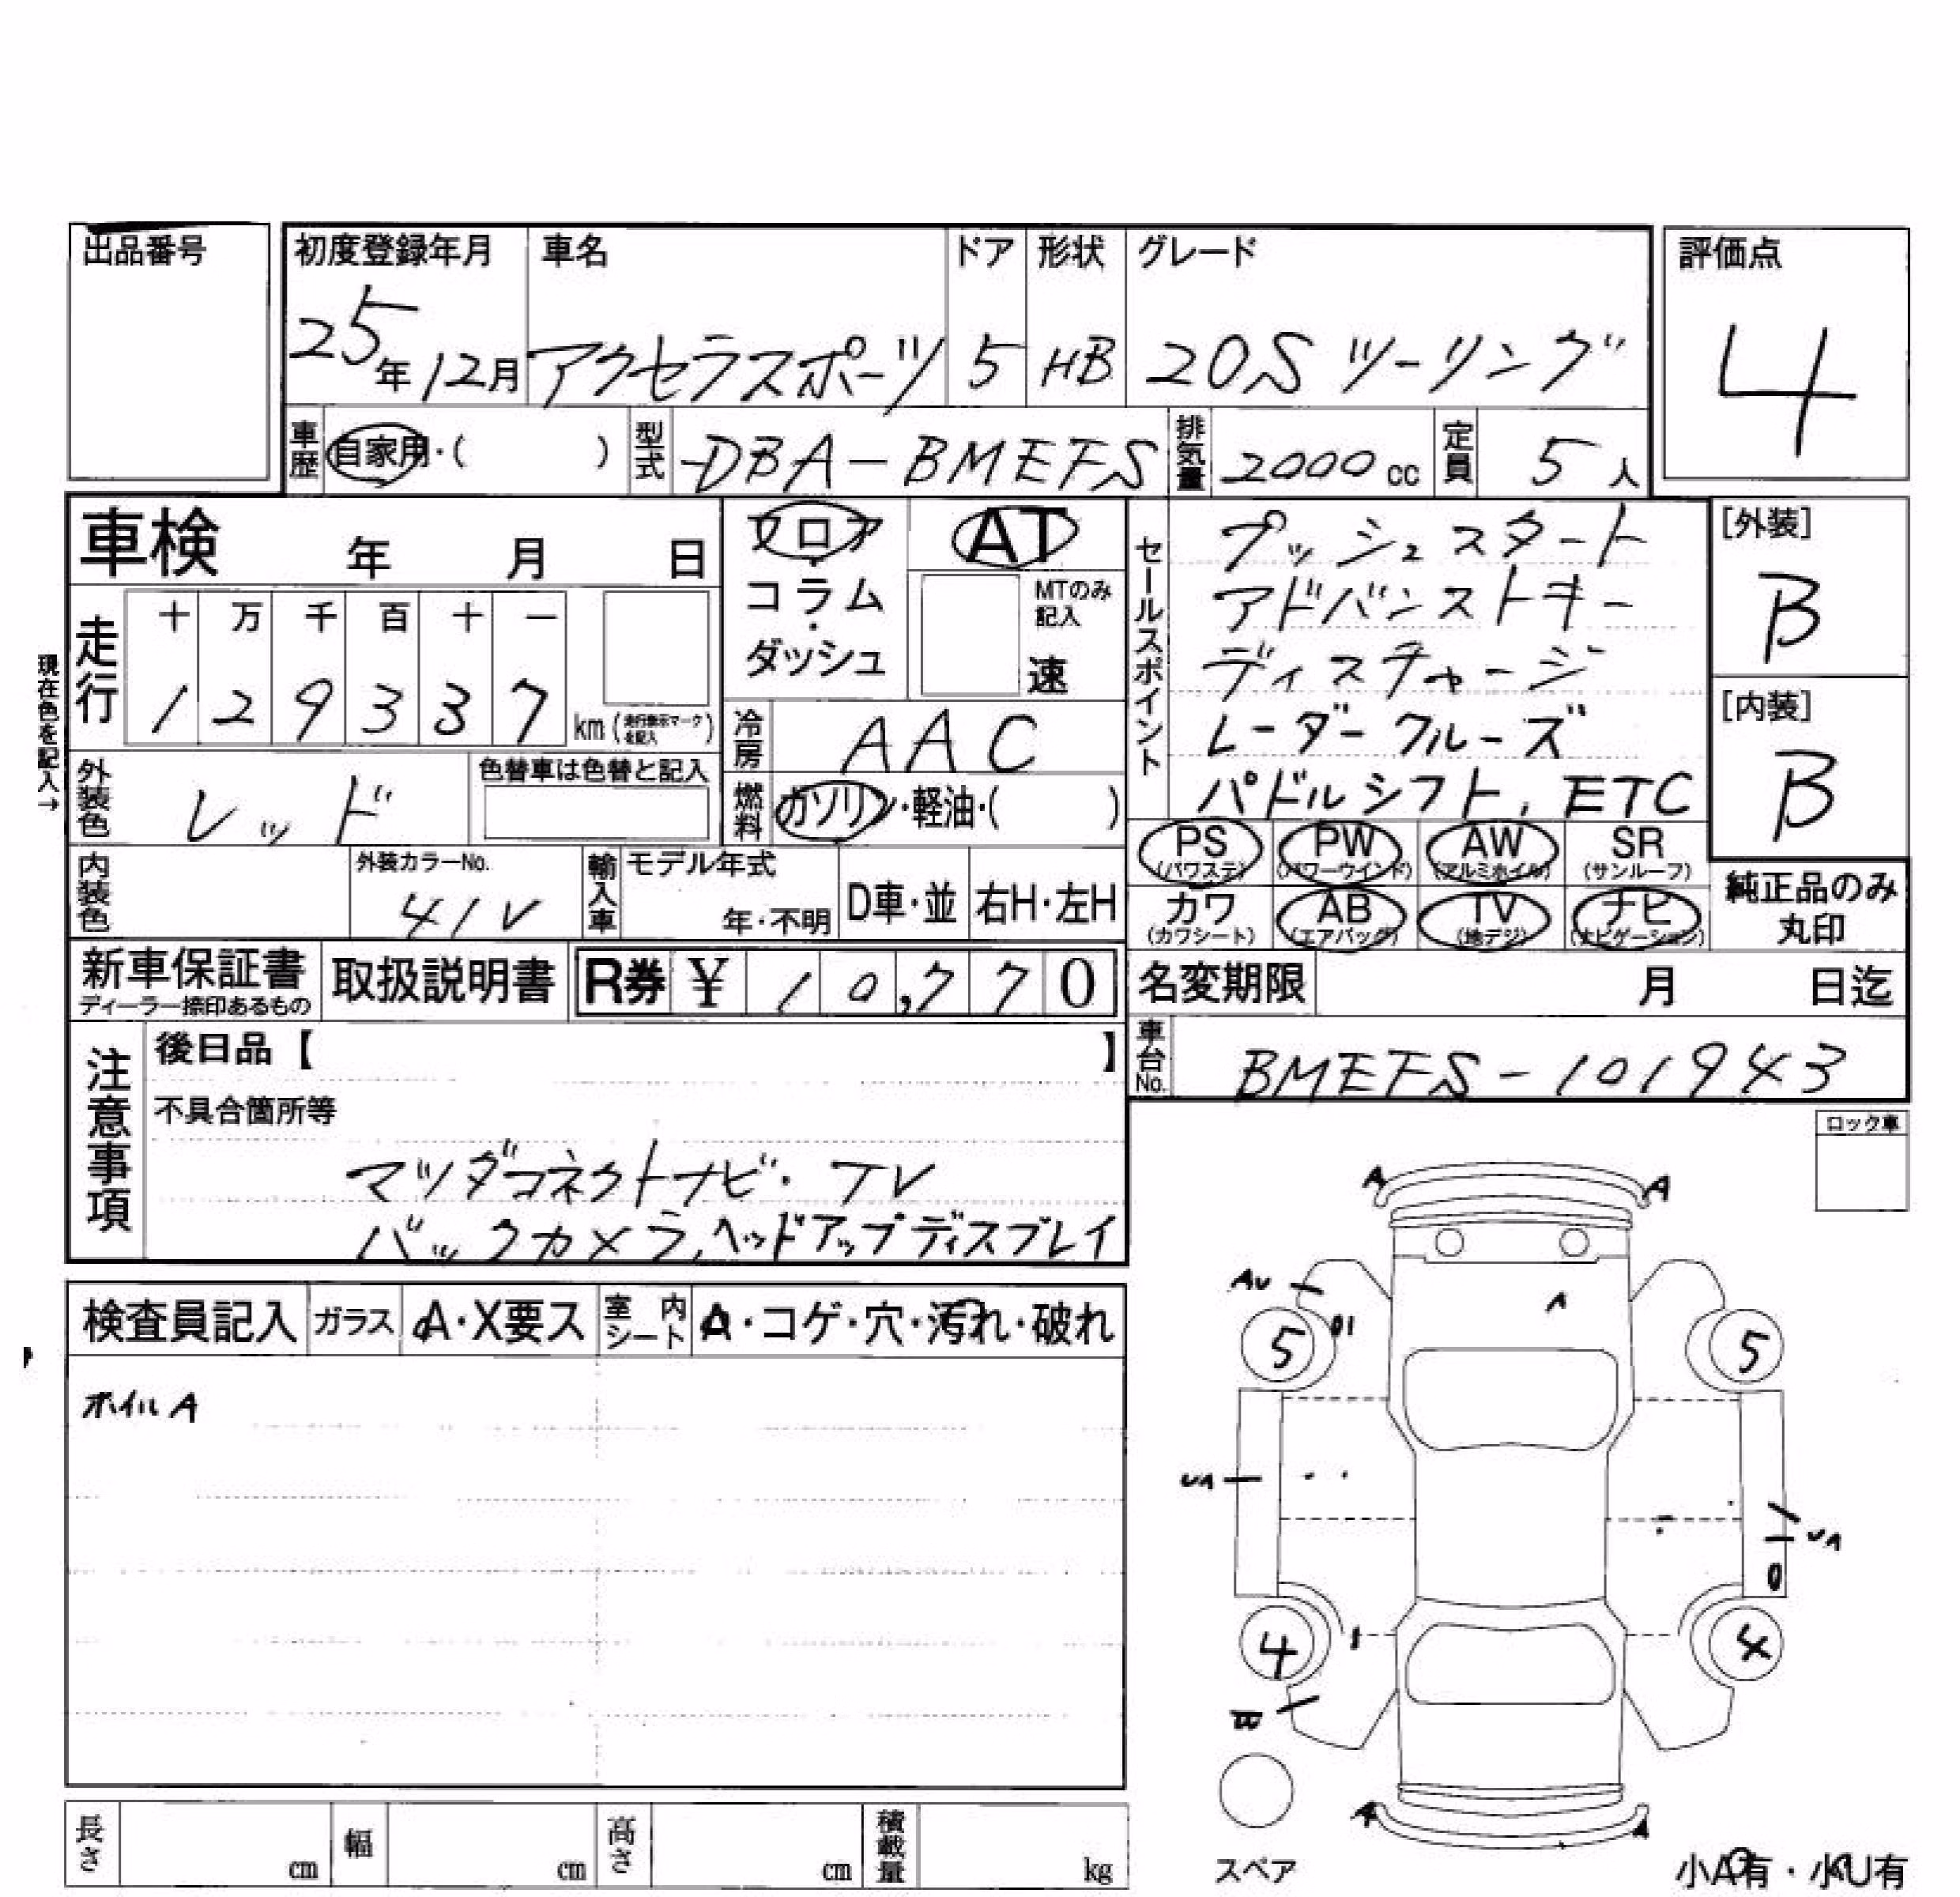 出品番号
初度登録年月 車名 ドア 形状 グレード 評価点
25年12月 アクセラスポーツ 5 HB 20S ツーリング 4
車歴 自家用・( ) 型式 DBA-BMEFS 排気量 2000cc 定員 5人
車検 年 月 日
フロア・コラム・ダッシュ
AT
MTのみ記入
速
走行 十 万 千 百 十 一
1 2 9 3 3 7 km (走行表示マークを記入)
現在色を記入→
外装色 レッド 色替車は色替と記入
冷房 AAC
燃料 ガソリン・軽油・( )
内装色 外装カラーNo. 41V 輸入車 モデル年式 年・不明 D車・並 右H・左H
セールスポイント
プッシュスタート
アドバンストキー
ディスチャージ
レーダークルーズ
パドルシフト, ETC
[外装]
B
[内装]
B
PS (パワステ) PW (パワーウインド) AW (アルミホイル) SR (サンルーフ)
カワ (カワシート) AB (エアバッグ) TV (地デジ) ナビ (ナビゲーション)
純正品のみ丸印
新車保証書 ディーラー捺印あるもの 取扱説明書 R券 ¥ 10,770
名変期限 月 日迄
車台No. BMEFS-101943
注意事項
後日品【 】
不具合箇所等
マツダコネクトナビ・TV
バックカメラ,ヘッドアップディスプレイ
ロック車
検査員記入 ガラス A・X要ス 室内シート A・コゲ・穴・汚れ・破れ
ホイルA
A A
AU A
5 5
UA
UA
4 4
A A
スペア
小A有・小U有
長さ cm 幅 cm 高さ cm 積載量 kg